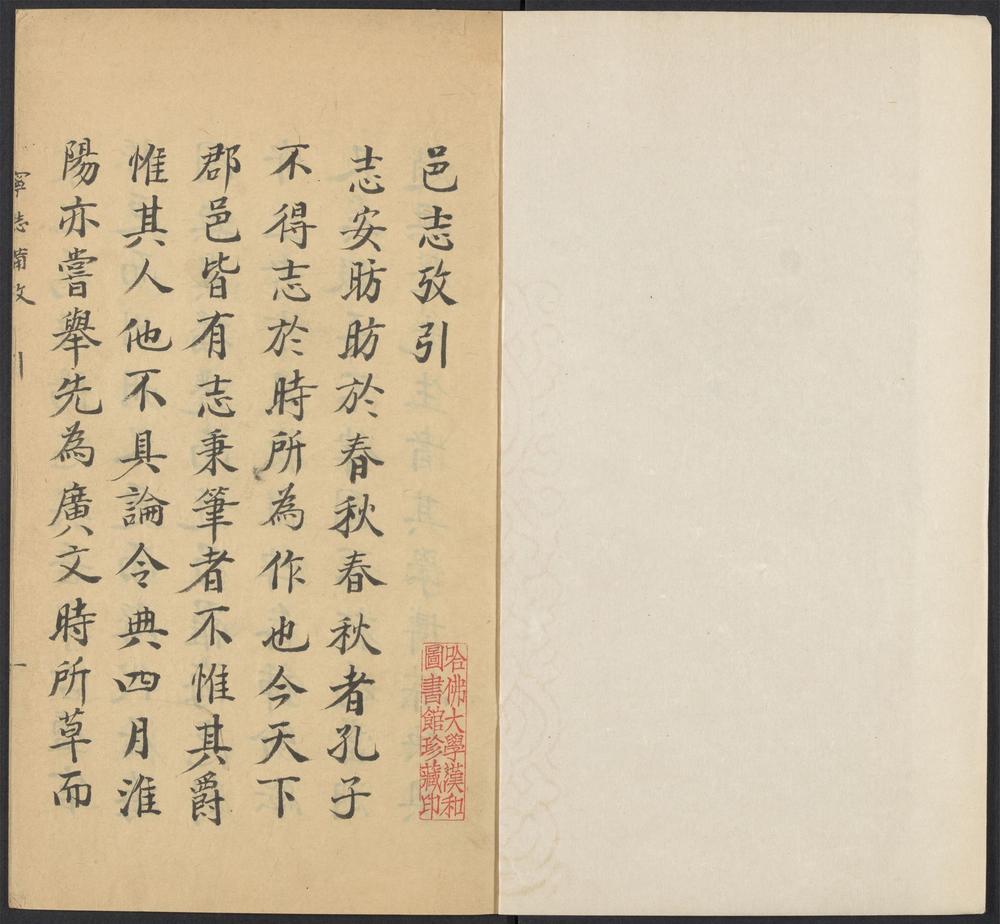 邑志攷引
志安昉昉於春秋春秋者孔子
不得志於時所為作也今天下
郡邑皆有志秉筆者不惟其爵
惟其人他不具論令典四月淮
陽亦嘗舉先為廣文時所草而
寧志備攷
引
一
哈佛大學漢和
圖書館珍藏印